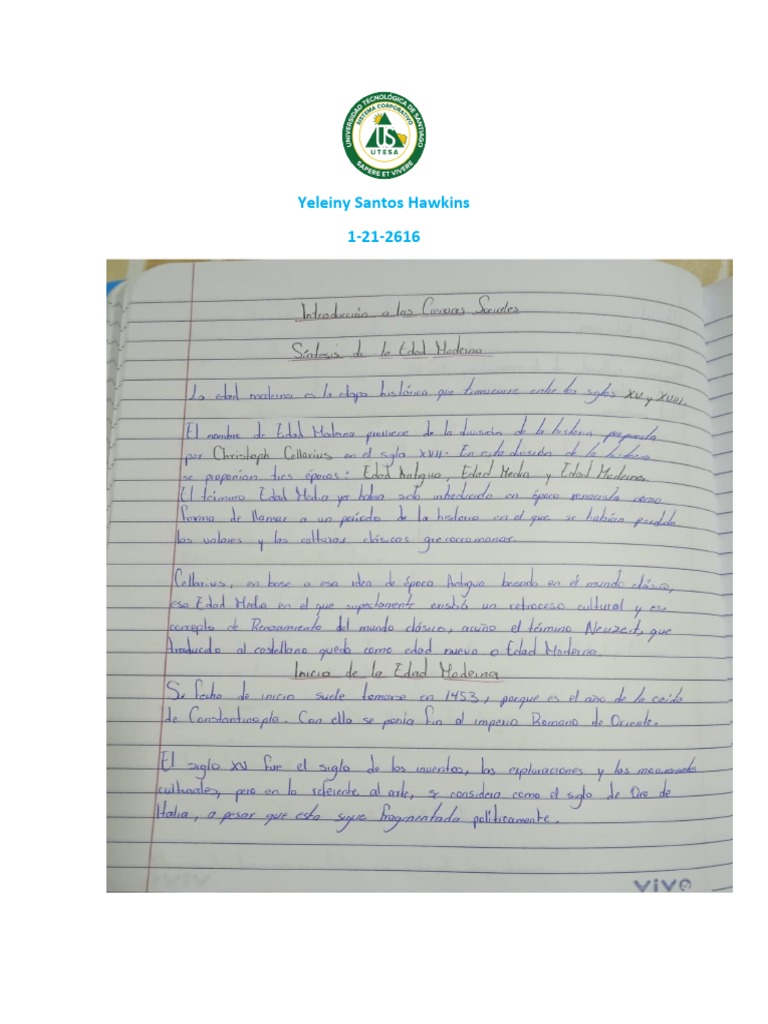 UNIVERSIDAD TECNOLÓGICA DE SANTIAGO
SISTEMA CORPORATIVO
US
UTESA
SAPERE ET VIVERE
Yeleiny Santos Hawkins
1-21-2616
Introducción a las Ciencias Sociales
Síntesis de la Edad Moderna
La edad moderna es la etapa histórica que transcurre entre los siglos XV y XVIII.
El nombre de Edad Moderna proviene de la división de la historia propuesta
por Christoph Cellarius en el siglo XVII. En esta división de la historia
se proponían tres épocas: Edad Antigua, Edad Media y Edad Moderna.
El término Edad Media ya había sido introducido en época renacista como
forma de llamar a un período de la historia en el que se habían perdido
los valores y las culturas clásicas grecorromanas.
Cellarius, en base a esa idea de época Antigua basada en el mundo clásico,
esa Edad Media en el que supuestamente existió un retroceso cultural y ese
concepto de Renacimiento del mundo clásico, acuño el término Neuzeit, que
traducido al castellano queda como edad nueva o Edad Moderna.
Inicio de la Edad Moderna
Su fecha de inicio suele tomarse en 1453, porque es el año de la caída
de Constantinopla. Con ello se ponía fin al imperio Romano de Oriente.
El siglo XV fue el siglo de los inventos, las exploraciones y los movimientos
culturales, pero en lo referente al arte, se considera como el siglo de Oro de
Italia, a pesar que esta sigue fragmentada políticamente.
vivo